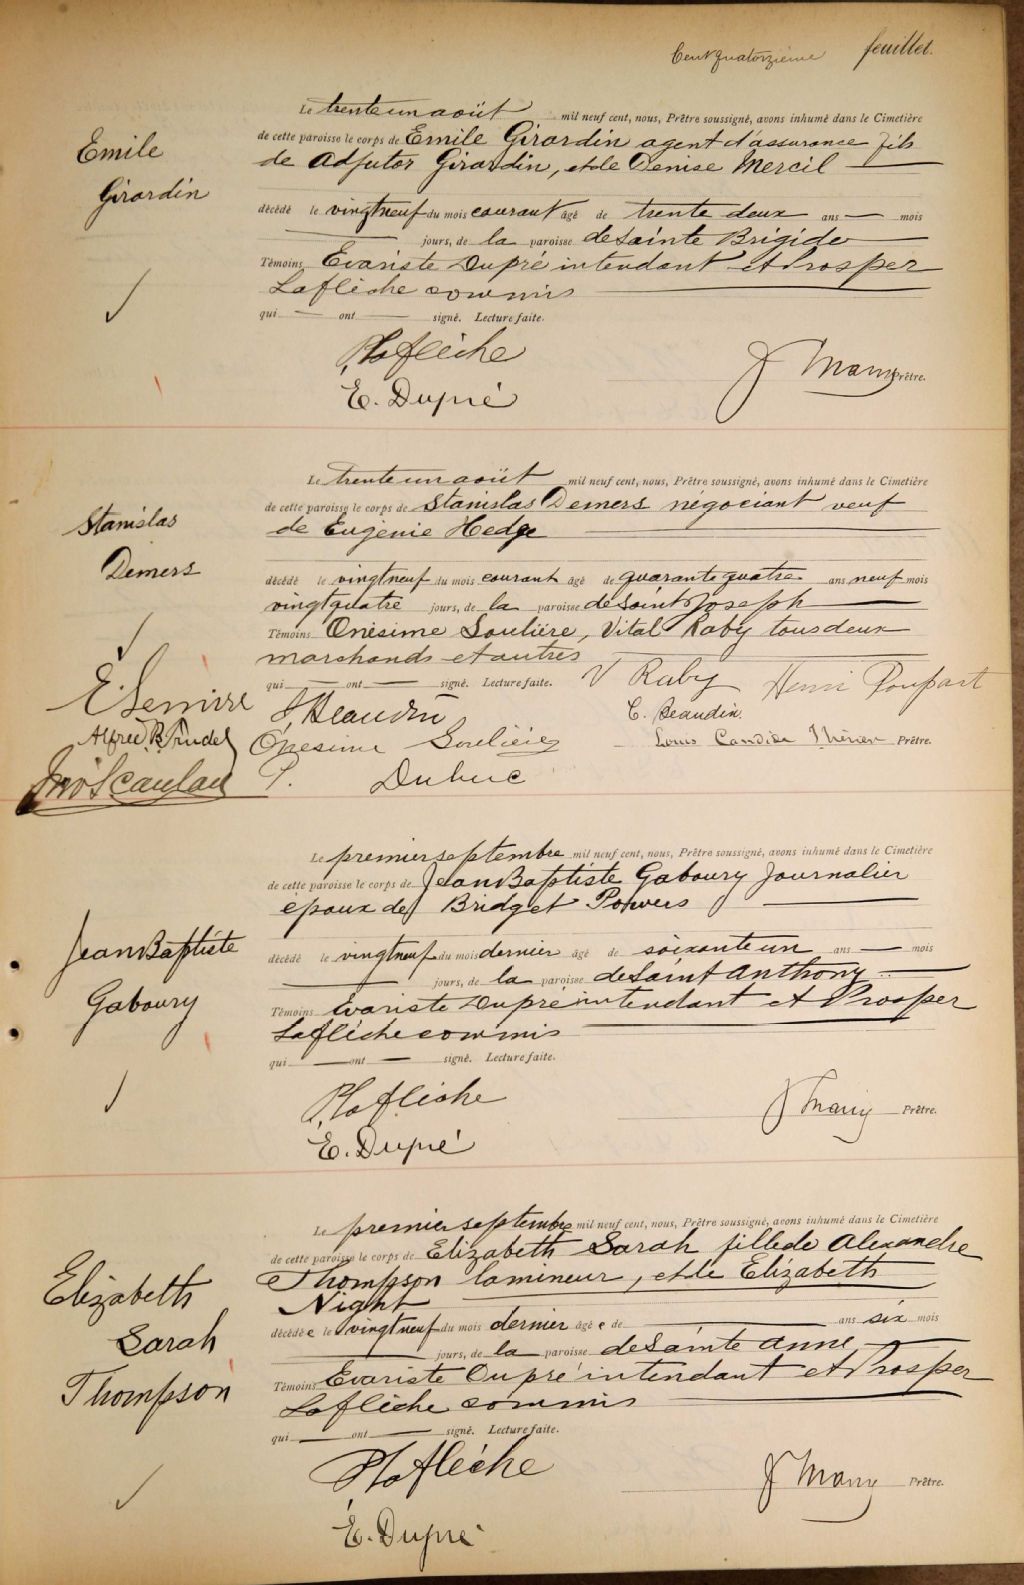 Cent quatorzième feuillet.
Emile
Girardin
Le trente un août mil neuf cent, nous, Prêtre soussigné, avons inhumé dans le Cimetière
de cette paroisse le corps de Emile Girardin agent d'assurance fils
de Adjutor Girardin, et de Denise Mercil
décédé le vingt neuf du mois courant âgé de trente deux ans — mois
jours, de la paroisse de Sainte Brigide
Témoins Evariste Dupré intendant et Prosper
Laflèche commis
qui — ont — signé. Lecture faite.
P. Laflèche
E. Dupré
Prêtre.
Stanislas
Demers
Le trente un août mil neuf cent, nous, Prêtre soussigné, avons inhumé dans le Cimetière
de cette paroisse le corps de Stanislas Demers négociant veuf
de Eugénie Hedge
décédé le vingt neuf du mois courant âgé de quarante quatre ans neuf mois
vingt quatre jours, de la paroisse de Saint Joseph
Témoins Onésime Soulière, Vital Raby tous deux
marchands et autres
qui — ont — signé. Lecture faite.
V Raby Henri Poupart
J. Beaudin C. Beaudin
Alfred B. Trudel
Onésime Soulières Louis Candide Thérien Prêtre.
Jno Scanlan P. Dubuc
Jean Baptiste
Gaboury
Le premier septembre mil neuf cent, nous, Prêtre soussigné, avons inhumé dans le Cimetière
de cette paroisse le corps de Jean Baptiste Gaboury Journalier
époux de Bridget Powers
décédé le vingt neuf du mois dernier âgé de soixante un ans — mois
jours, de la paroisse de Saint Anthony
Témoins Evariste Dupré intendant et Prosper
Laflèche commis
qui — ont — signé. Lecture faite.
P. Laflèche
E. Dupré
Prêtre.
Elizabeth
Sarah
Thompson
Le premier septembre mil neuf cent, nous, Prêtre soussigné, avons inhumé dans le Cimetière
de cette paroisse le corps de Elizabeth Sarah fille de Alexandre
Thompson lamineur, et de Elizabeth
Night
décédée le vingt neuf du mois dernier âgée de — ans six mois
jours, de la paroisse de Sainte Anne
Témoins Evariste Dupré intendant et Prosper
Laflèche commis
qui — ont — signé. Lecture faite.
P Laflèche
E. Dupré
Prêtre.